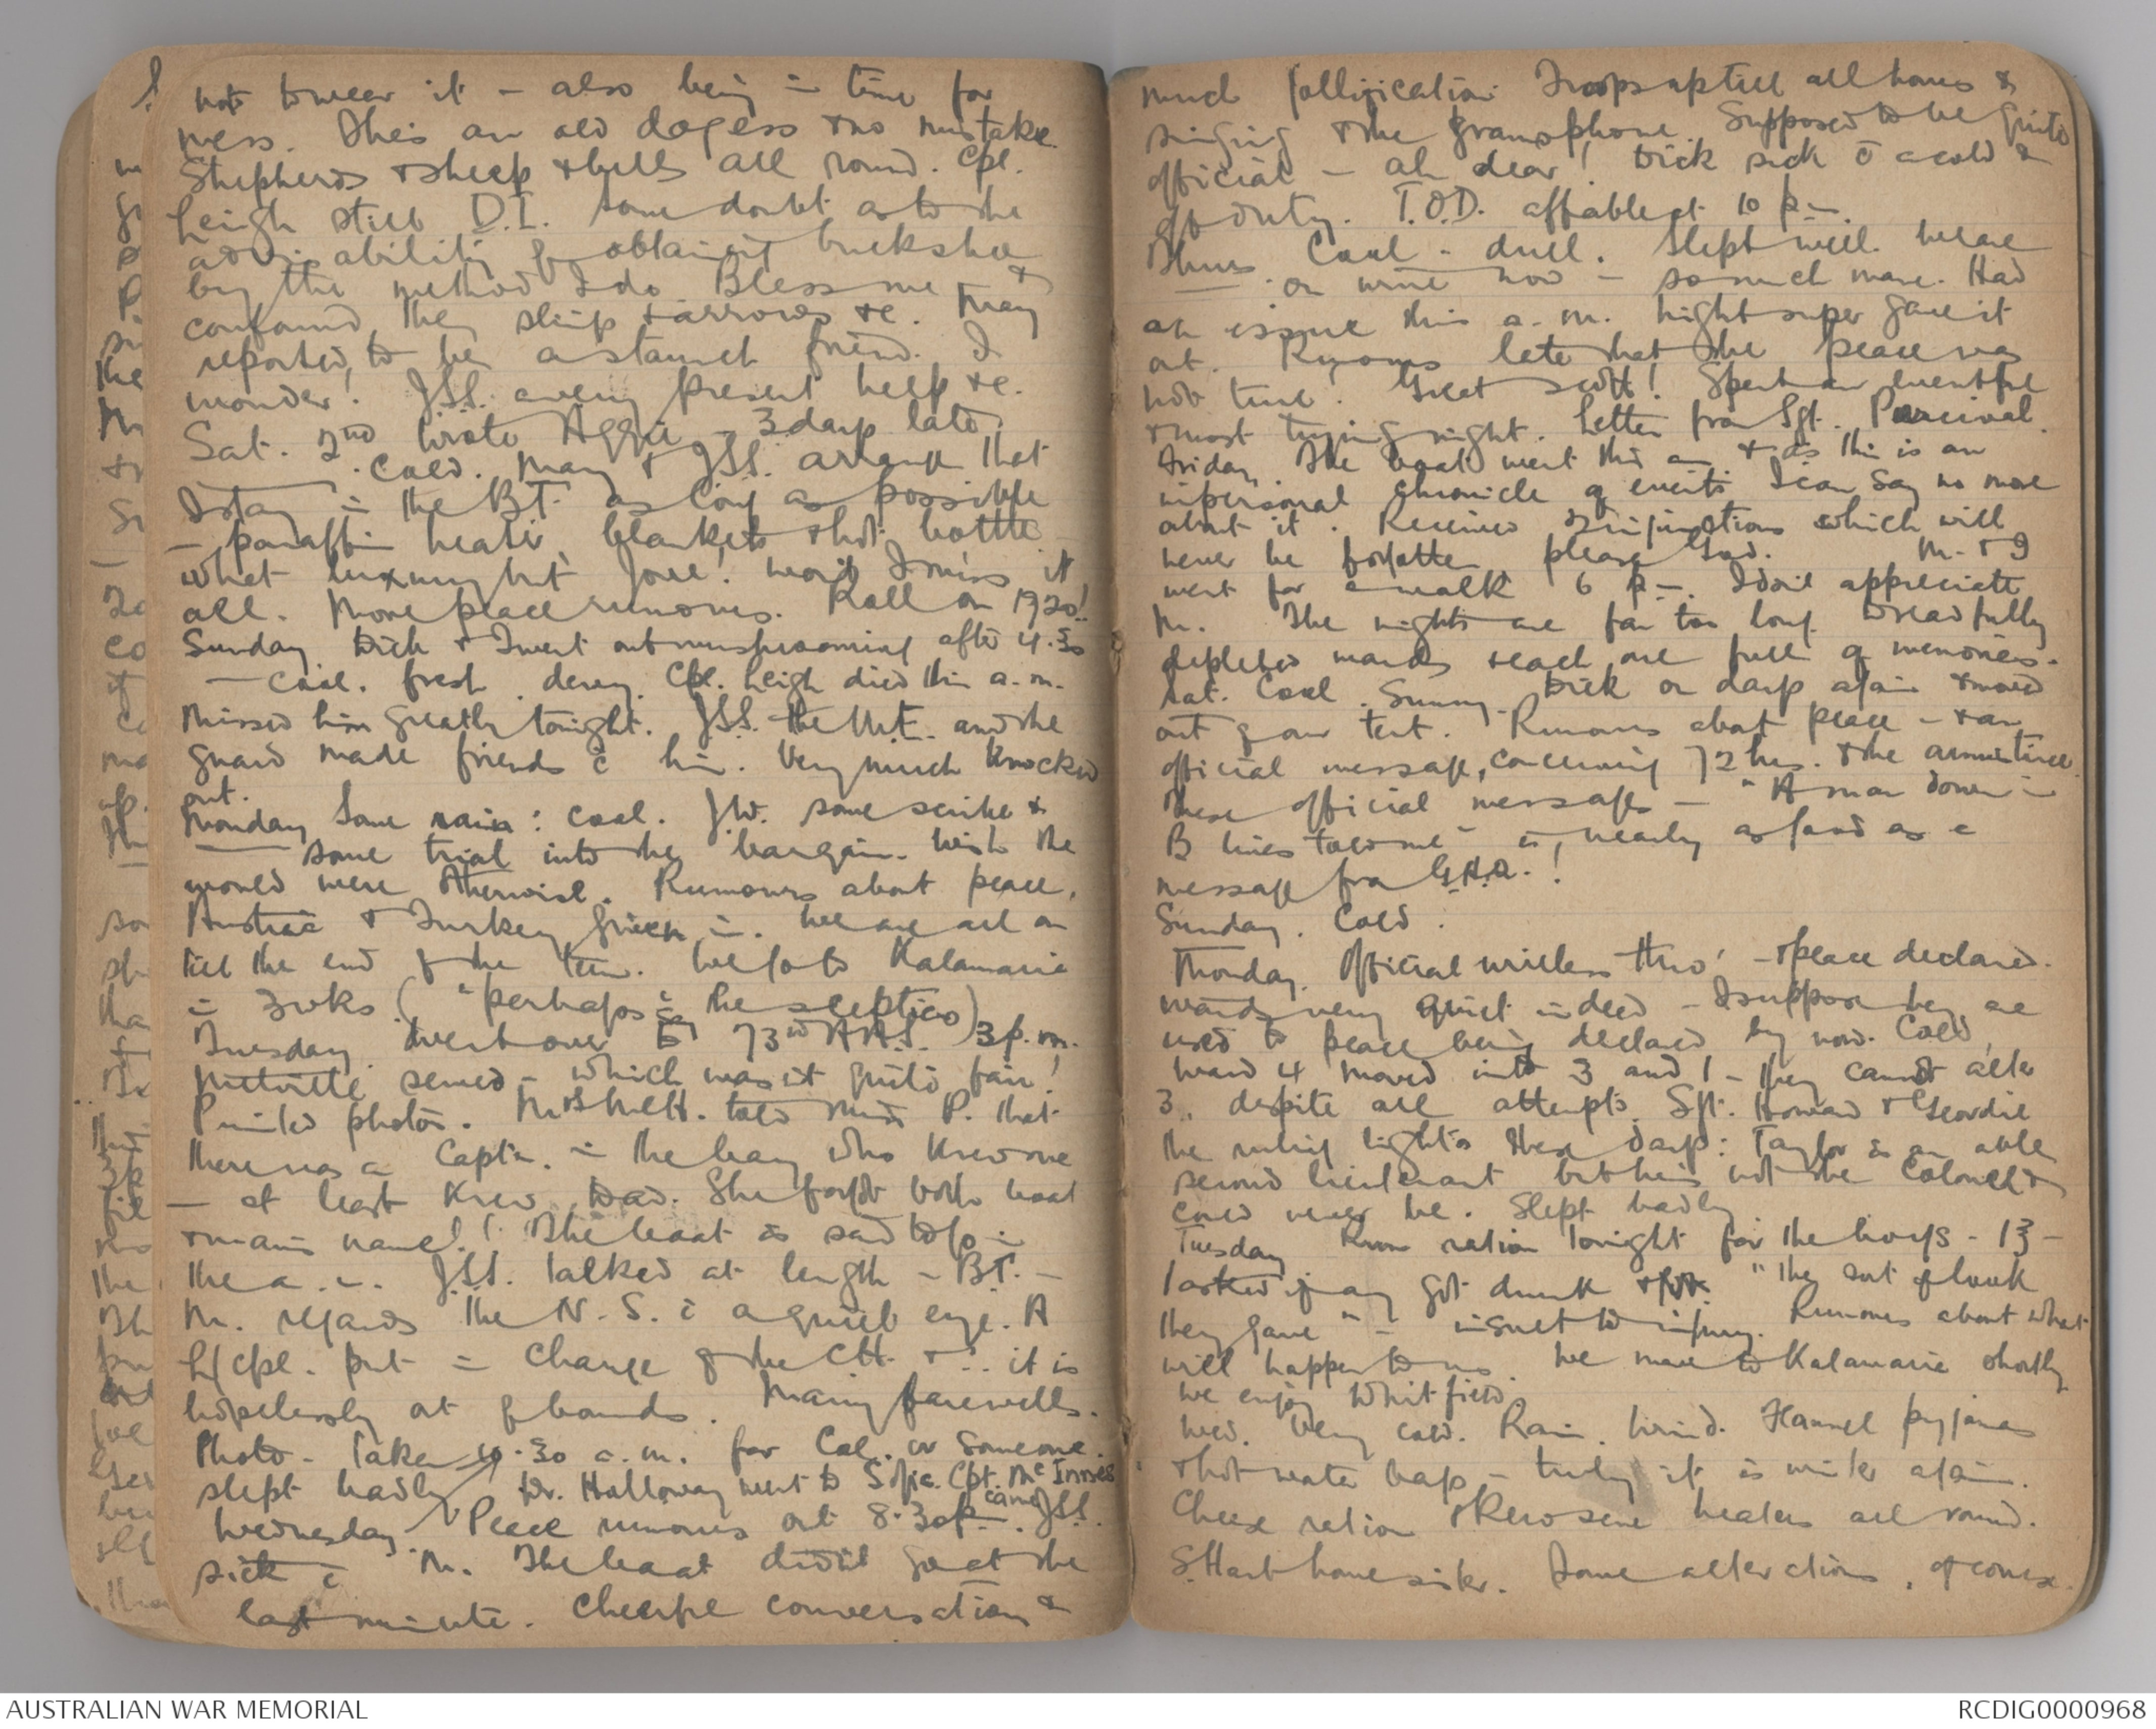 not to wear it - also being in time for
mess. She's an old dogess & no mistake.
Shepherds & sheep & bells all round. Cpl.
Leigh still D.I. Some doubt as to the
advisability of obtaining buckshee
by the method I do Bless me &
confound they slings & arrows &c. May
reported to be a staunch friend. I
wonder! JSS. a very present help &c.
Sat. 2nd Wrote Aggie - 3 days late.
Cold. May & JSS. arrange that
I stay in the BT. as long as possible
- paraffin heater blankets & hot bottle -
what luxury but Jove! won't I miss it
all. More peace rumours. Roll on 1920!!
Sunday Dick & I went out mushrooming after 4.30
- Cool. fresh. dewy. Cpl. Leigh died this a.m.
Missed him greatly tonight. JSS. the and the
guard made friends c̄ him. Very much knocked
out.
Monday Some rain: cool. JW. some scribe &
some trial into the bargain. Wish the
world were otherwise. Rumours about peace.
Austria & Turkey given in. We are all on
till the end of the time. We go to Kalamaria
in 3 wks ("perhaps" the sceptics)
Tuesday. Went over to 73rd 3 p.m.
Melville served - which wasn't quite fair!
Printed photos. told Miss P. that
there was a Captn. in the bay who knew me
- at least knew Dad. She forgot both boat
& man's name!! The boat is said to go in
the a.m. JSS. talked at length - BT. -
M. regards the N.S. c̄ a quiet eye. A
L/cpl. put in charge of the CH. & it is
hopelessly out of bounds. Many farewells.
Photo - taken 10.30 a.m. for Col. or someone.
slept badly Dr. Holloway went to Sofia. Cpt. McInnes
came
Wednesday. Peace rumours out 8.30 p.m. JSS.
sick c̄ M. The boat didn't go at the
last minute. Cheerful conversation &
much jollification Troops up till all hours &
singing & the gramophone. Supposed to be quite
official - ah dear! Dick sick c̄ a cold &
off duty. T.O.D. affable at 10 p.m.
Thurs. Cool - dull. Slept well. We are
on wine now - so much more. Had
an issue this a.m. Night super gave it
out. Rumours late that the peace was
not true! Great Scott! Spent an eventful
& most trying night. Letter from Sgt. Percival.
Friday. The boat went this am & as this is an
impersonal chronicle of events I can say no more
about it. Received injunctions which will
never be forgotten please God. M. & I
went for a walk 6 p.m. I do appreciate
M. The nights are far too long. Dreadfully
depleted wards & each one full of memories.
Sat. Cool. Sunny. Dick on days again & moved
out of our tent. Rumours about peace - & an
official message, concerning 72 hrs. & the armistice.
These official messages - "A man down in
B lines told me" is nearly as good as a
message from G.H.Q.!
Sunday. Cold.
Monday. Official wireless thro' - peace declared.
wards very quiet indeed - I suppose they are
used to peace being declared by now. Cold
Ward 4 moved into 3 and 1 - they cannot alter
3. despite all attempts. Sgt. Howard & Geordie
the ruling lights these days: Taylor is an able
second lieutenant but he's not the Colonel &
could never be. Slept badly.
Tuesday Rum ration tonight for the boys - 13 -
I asked if any got drunk & "the sort of look
they gave" - insult to injury. Rumours about what
will happen to us. We move to Kalamaria shortly.
We enjoy Whitfield.
Wed. Very cold. Rain. Wind. Flannel pyjamas
& hot water bags - truly it is winter again.
Cheese ration & Kerosene heaters all round.
S. Hart homesick. Some alterations, of course.
AUSTRALIAN WAR MEMORIAL
RCDIG0000968